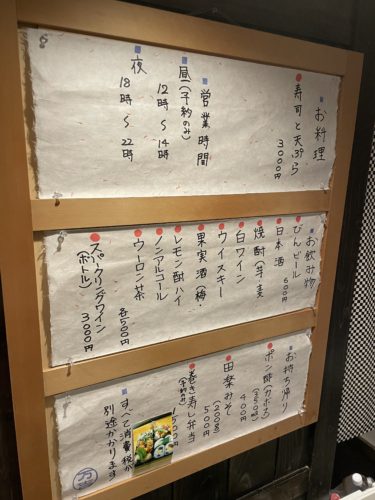 お料理
寿司と天ぷら
3000円
営業時間
昼(予約のみ)
12時～14時
夜
18時～22時
お飲み物
びんビール
日本酒 600円
焼酎(芋・麦
白ワイン
ウイスキー
果実酒(梅・
レモン酎ハイ
ノンアルコール
ウーロン茶
各500円
スパークリングワイン
(ボトル) 3000円
お持ち帰り
ポン酢(カボス)
(350㎖)
400円
田楽みそ
(200g)
500円
巻き寿し弁当
(予約のみ)
1500円
すべて消費税が
別途かかります